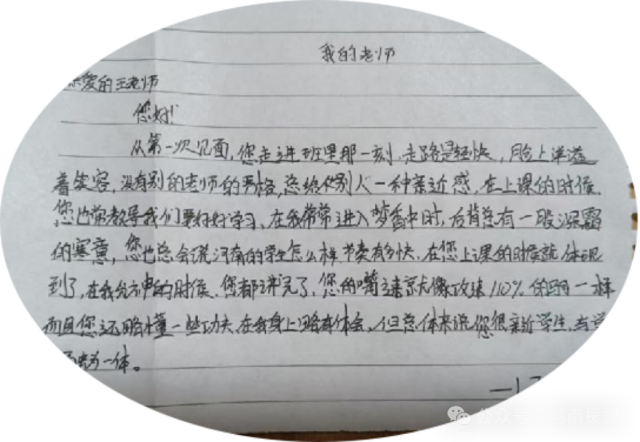 我的老师
亲爱的王老师
您好！
从第一次见面，您走进班里那一刻，走路是轻快，脸上洋溢
着笑容，没有别的老师的严格，总给别人一种亲近感，在上课的时候
您也常教导我们要好好学习，在我常常进入梦香中时，后背总有一股深深
的寒意，您也总会说河南的学生怎么样，节奏有多快，在您上课的时候就体现
到了，在我的时候，您都讲完了，您的嘴速就像攻速110%的一样
而且您还略懂一些功夫，在我身上略有体会，但总体来说您很亲近学生，与学
一体。
公众号